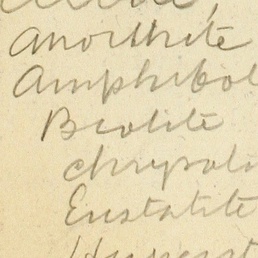 Anorthite
Amphibol
Biotite
chrysol
Enstatite